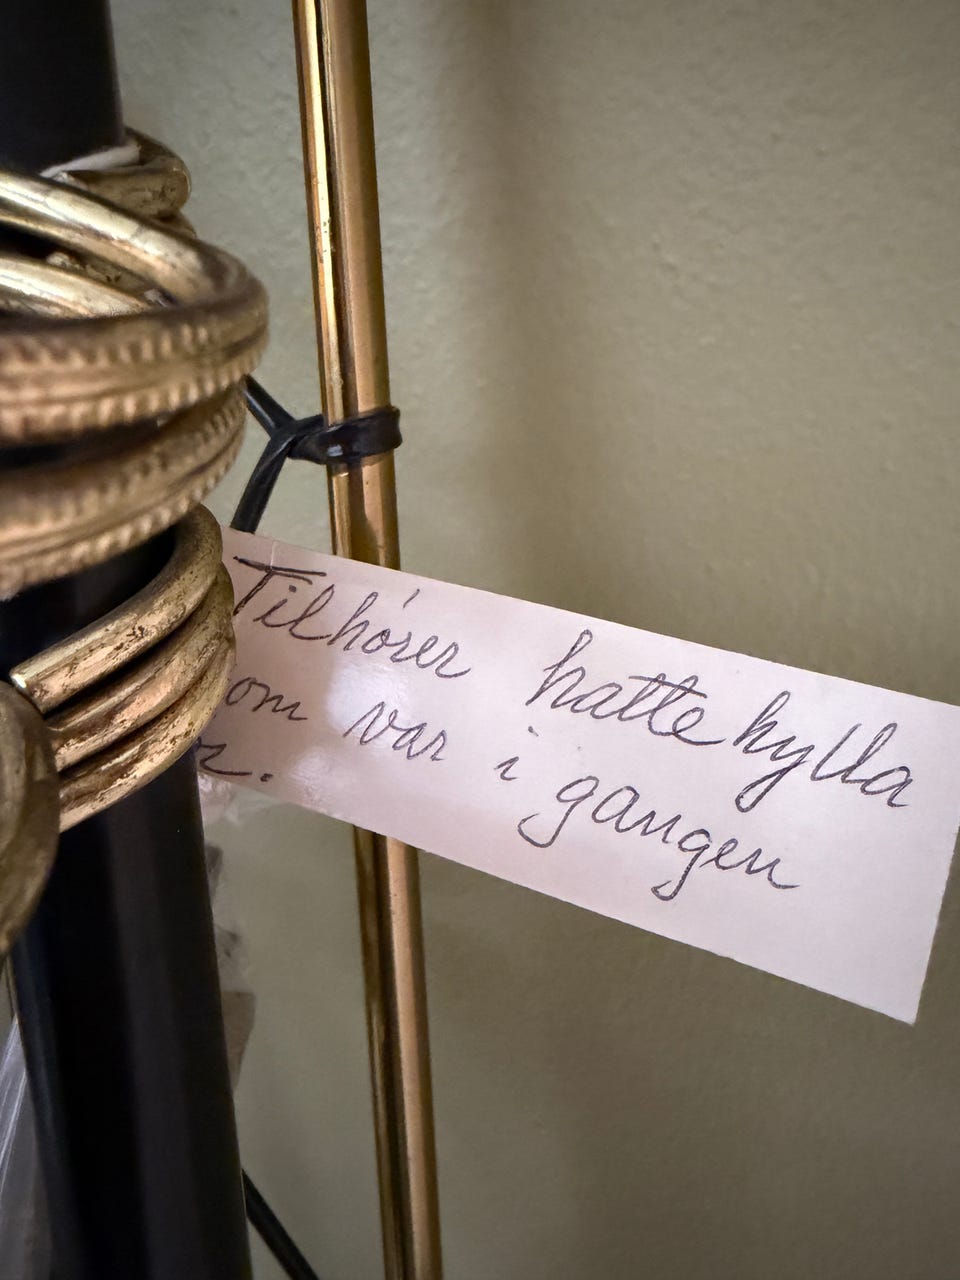 Tilhører hattehylla
om var i gangen